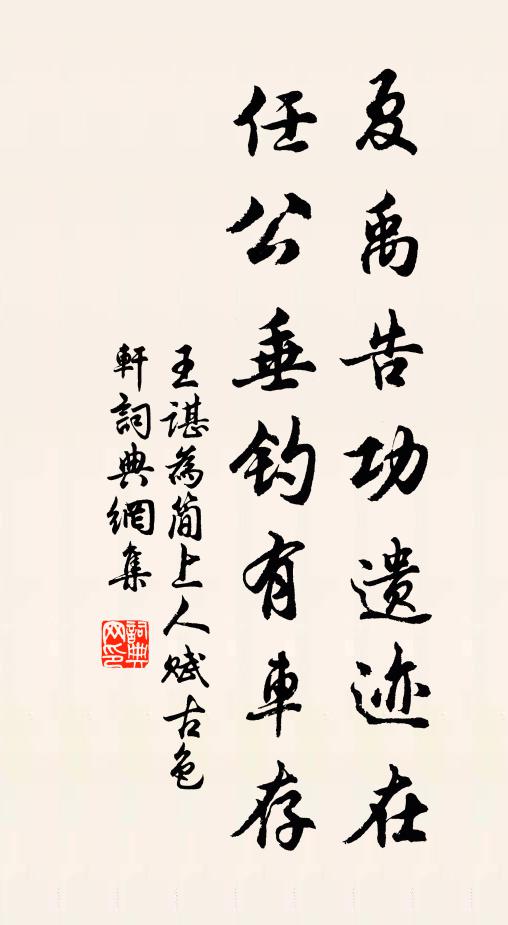 夏禹告功遗迹在
任公垂钓有車存
王谌為简上人赋古色
軒詞典網集
詞典
网印